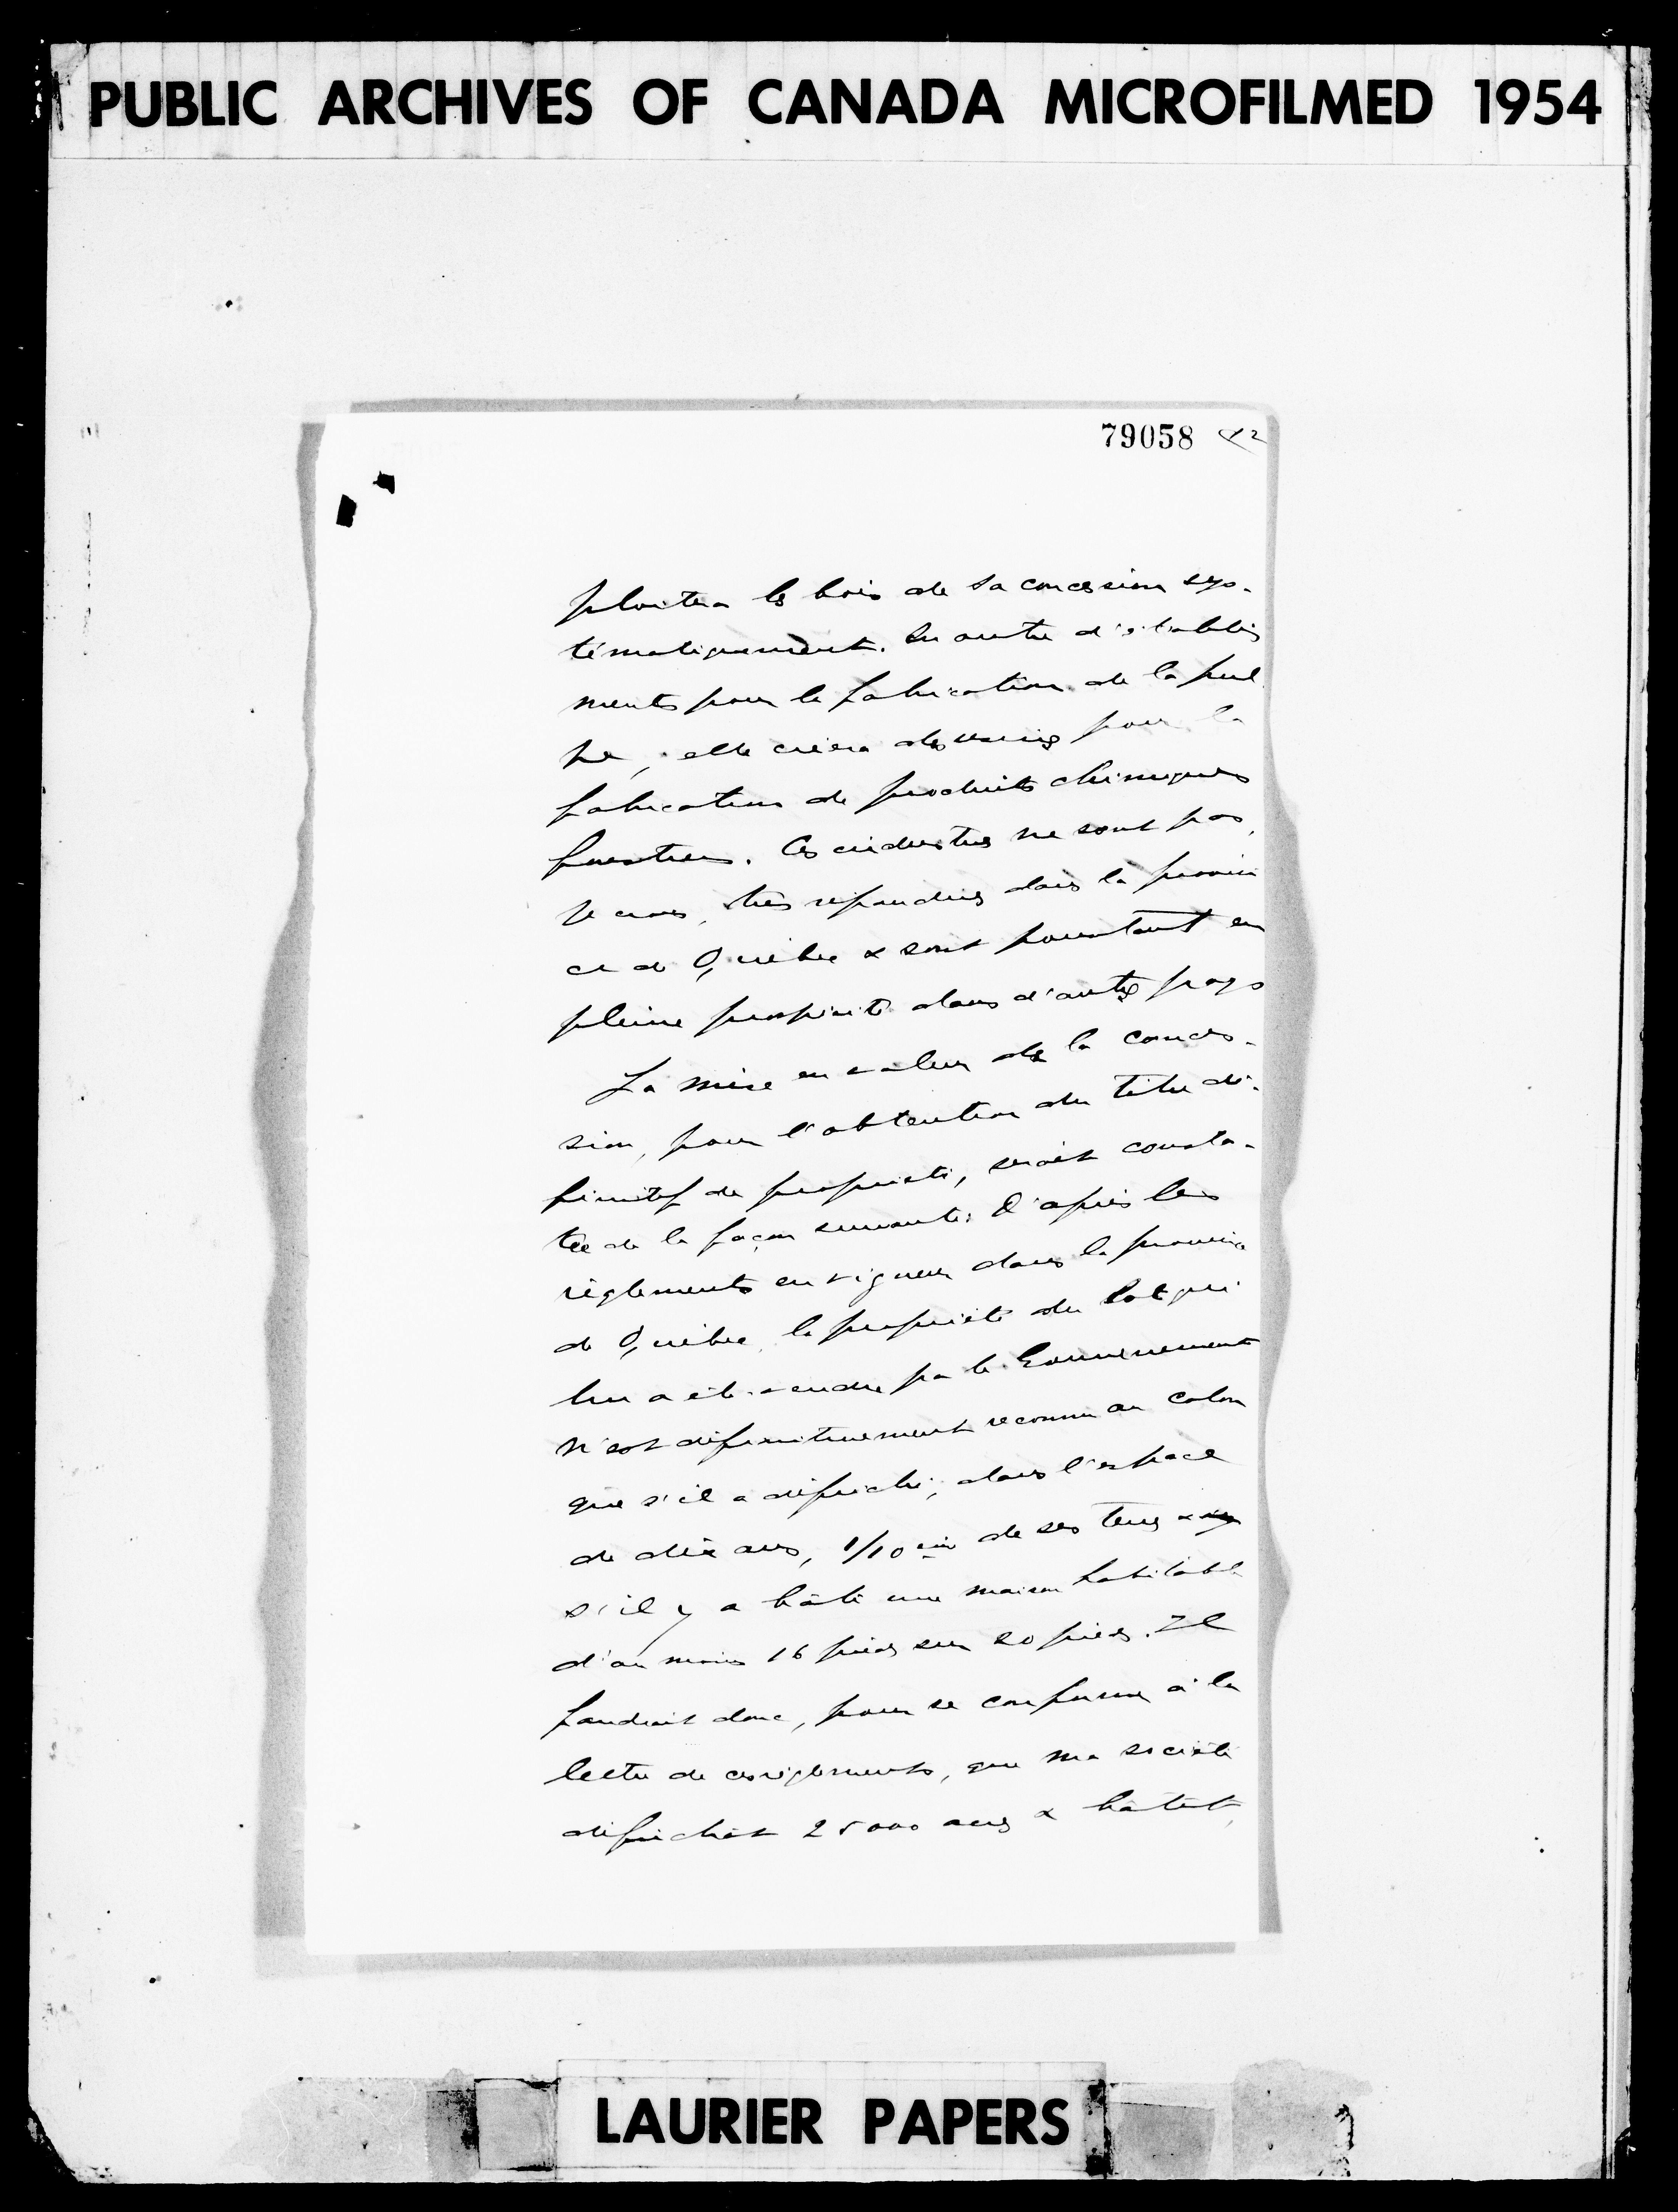 PUBLIC ARCHIVES OF CANADA MICROFILMED 1954
79058
ploitera le bois de sa concession sys-
tématiquement. En outre d'établis
ments pour la fabrication de la pul
pe, elle créera des usines pour la
fabrication de produits chimiques
forestiers. Ces industries ne sont pas,
je crois, très répandues dans la provin
ce de Québec & sont pourtant en
pleine prospérité dans d'autres pays
La mise en valeur de la conces-
sion, pour l'obtention du titre dé-
finitif de propriété, serait consta-
tée de la façon suivante: D'après les
règlements en vigueur dans la province
de Québec, la propriété du lot qui
lui a été vendu par le Gouvernement
n'est définitivement reconnue au colon
que s'il a défriché, dans l'espace
de dix ans, 1/10 ème de ses terres &
s'il y a bâti une maison habitable
d'au moins 16 pieds sur 20 pieds. Il
faudrait donc, pour se conformer à la
lettre de ces règlements, que ma société
défrichât 25000 acres & bâtit,
LAURIER PAPERS